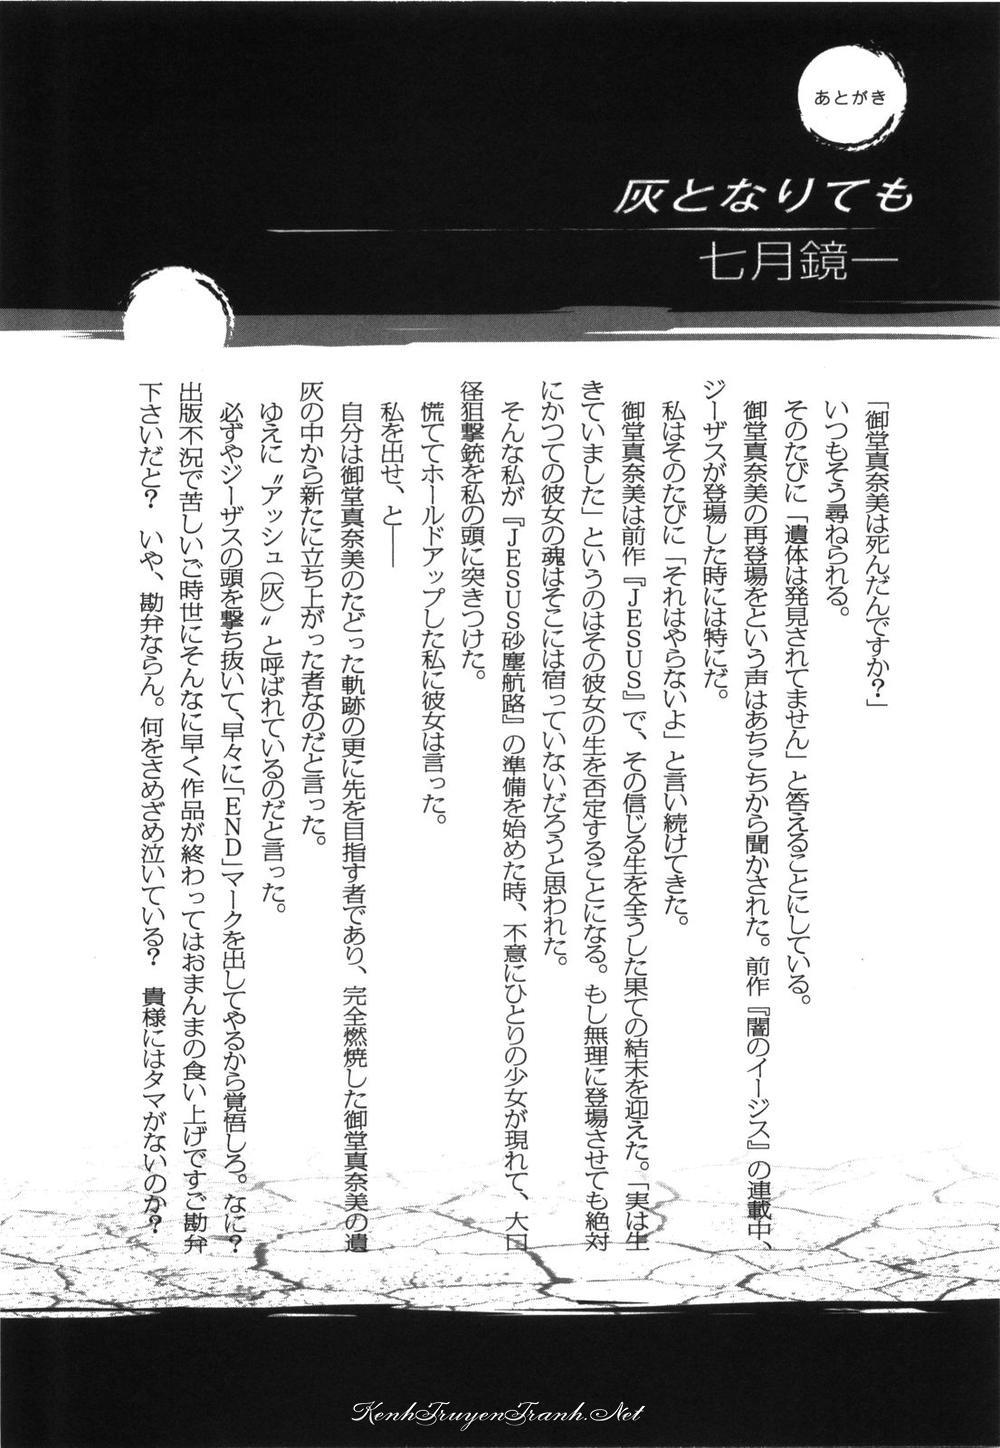 あとがき
灰となりても
七月鏡一
「御堂真奈美は死んだんですか？」
いつもそう尋ねられる。
そのたびに「遺体は発見されてません」と答えることにしている。
御堂真奈美の再登場をという声はあちこちから聞かされた。前作『闇のイージス』の連載中、
ジーザスが登場した時には特にだ。
私はそのたびに「それはやらないよ」と言い続けてきた。
御堂真奈美は前作『ＪＥＳＵＳ』で、その信じる生を全うした果ての結末を迎えた。「実は生
きていました」というのはその彼女の生を否定することになる。もし無理に登場させても絶対
にかつての彼女の魂はそこには宿っていないだろうと思われた。
そんな私が『ＪＥＳＵＳ砂塵航路』の準備を始めた時、不意にひとりの少女が現れて、大口
径狙撃銃を私の頭に突きつけた。
慌ててホールドアップした私に彼女は言った。
私を出せ、と――
自分は御堂真奈美のたどった軌跡の更に先を目指す者であり、完全燃焼した御堂真奈美の遺
灰の中から新たに立ち上がった者なのだと言った。
ゆえに〝アッシュ（灰）〟と呼ばれているのだと言った。
必ずやジーザスの頭を撃ち抜いて、早々に「ＥＮＤ」マークを出してやるから覚悟しろ。なに？
出版不況で苦しいご時世にそんなに早く作品が終わってはおまんまの食い上げですご勘弁
下さいだと？　いや、勘弁ならん。何をさめざめ泣いている？　貴様にはタマがないのか？
KenhTruyenTranh.Net